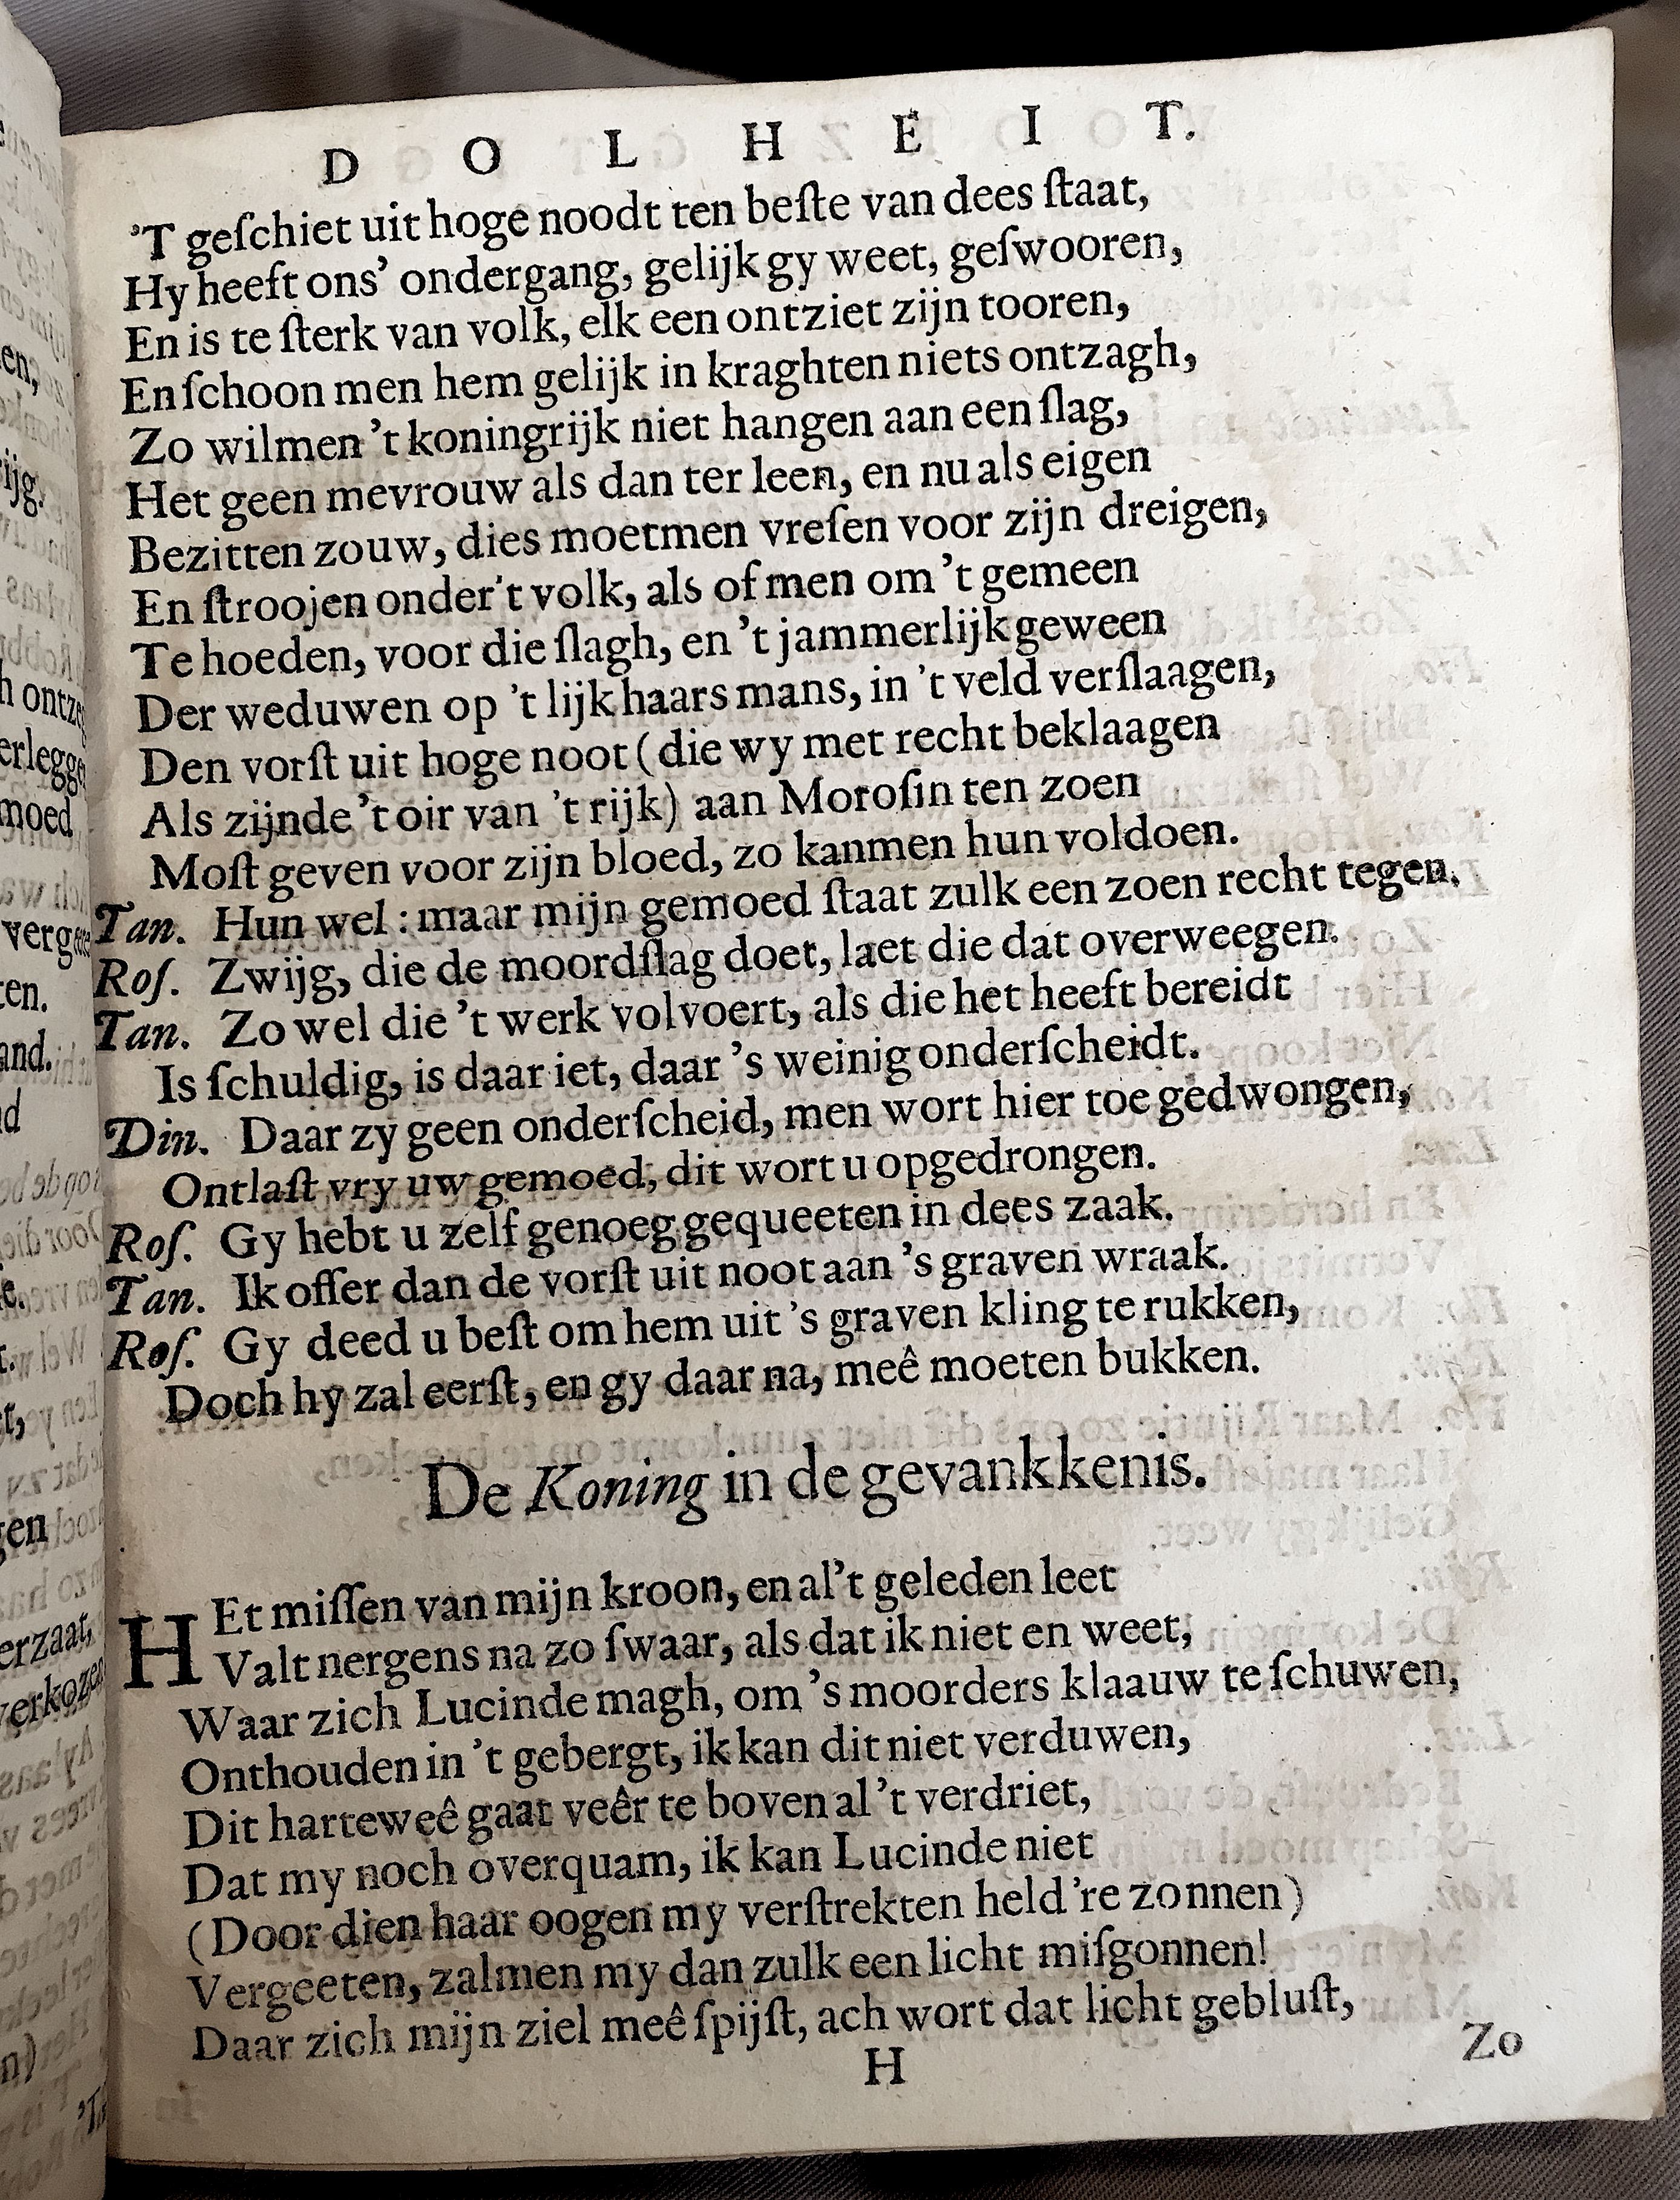 DOLHEIT.
'T geſchiet uit hoge noodt ten beſte van dees ſtaat,
Hy heeft ons' ondergang, gelijk gy weet, geſwooren,
En is te ſterk van volk, elk een ontziet zijn tooren,
En ſchoon men hem gelijk in kraghten niets ontzagh,
Zo wilmen 't koningrijk niet hangen aan een ſlag,
Het geen mevrouw als dan ter leen, en nu als eigen
Bezitten zouw, dies moetmen vreſen voor zijn dreigen,
En ſtroojen onder 't volk, als of men om 't gemeen
Te hoeden, voor die ſlagh, en 't jammerlijk geween
Der weduwen op 't lijk haars mans, in 't veld verſlaagen,
Den vorſt uit hoge noot (die wy met recht beklaagen
Als zijnde 't oir van 't rijk) aan Moroſin ten zoen
Moſt geven voor zijn bloed, zo kanmen hun voldoen.
Tan. Hun wel: maar mijn gemoed ſtaat zulk een zoen recht tegen.
Roſ. Zwijg, die de moordſlag doet, laet die dat overweegen.
Tan. Zo wel die 't werk volvoert, als die het heeft bereidt
Is ſchuldig, is daar iet, daar 's weinig onderſcheidt.
Din. Daar zy geen onderſcheid, men wort hier toe gedwongen,
Ontlaſt vry uw gemoed, dit wort u opgedrongen.
Roſ. Gy hebt u zelf genoeg gequeeten in dees zaak.
Tan. Ik offer dan de vorſt uit noot aan 's graven wraak.
Roſ. Gy deed u beſt om hem uit 's graven kling te rukken,
Doch hy zal eerſt, en gy daar na, meê moeten bukken.
De Koning in de gevankkenis.
HEt miſſen van mijn kroon, en al't geleden leet
Valt nergens na zo ſwaar, als dat ik niet en weet,
Waar zich Lucinde magh, om 's moorders klaauw te ſchuwen,
Onthouden in 't gebergt, ik kan dit niet verduwen,
Dit harteweê gaat veêr te boven al 't verdriet,
Dat my noch overquam, ik kan Lucinde niet
(Door dien haar oogen my verſtrekten held 're zonnen)
Vergeeten, zalmen my dan zulk een licht miſgonnen!
Daar zich mijn ziel meê ſpijſt, ach wort dat licht gebluſt,
H
Zo